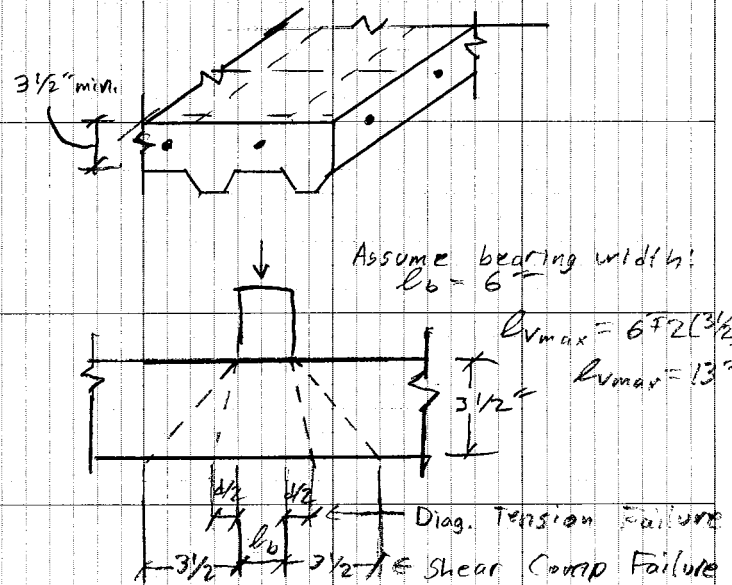 3 1/2" min.
Assume bearing width:
lb = 6"
lvmax = 6"+2(3 1/2
lvmax = 13"
3 1/2"
d/2 d/2
Diag. Tension Failure
3 1/2 lb 3 1/2 Shear Comp Failure